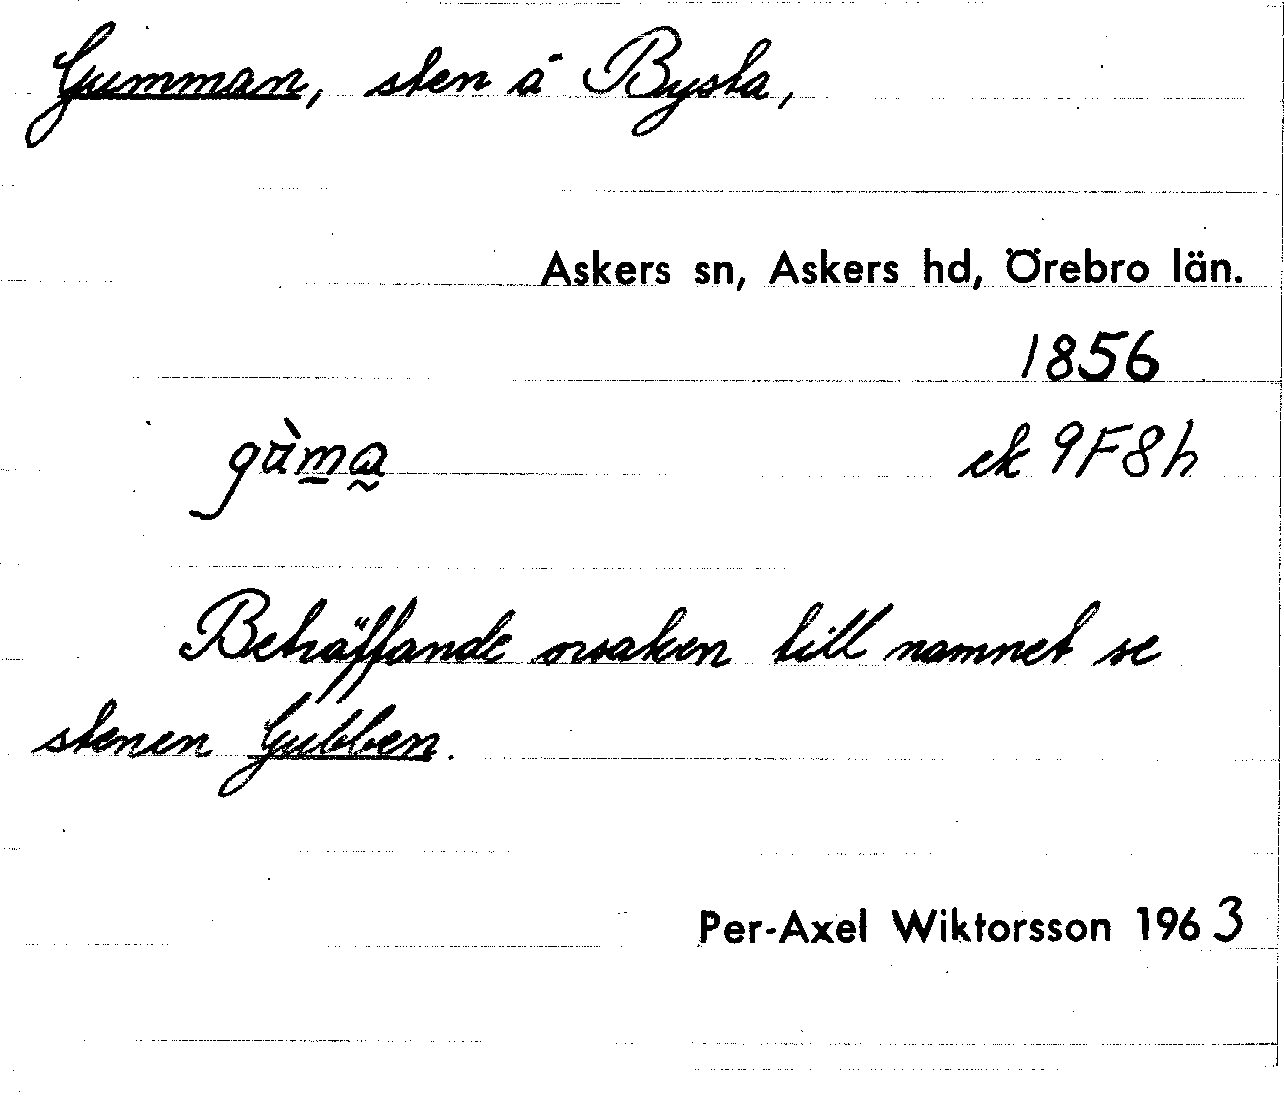 Gumman, sten å Bysta,
Askers sn, Askers hd, Örebro län.
1856
ek 9F8h
Beträffande orsaken till namnet se
stenen Gubben.
Per-Axel Wiktorsson 1963